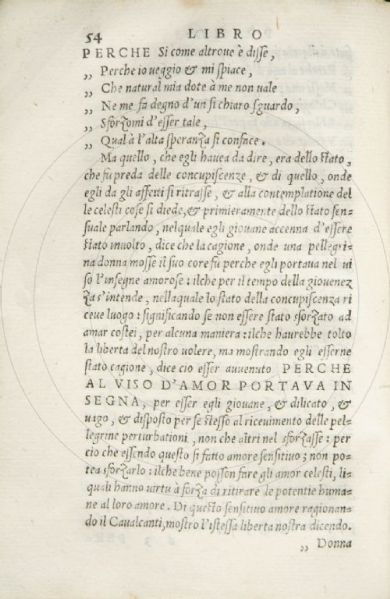 54 LIBRO
PERCHE Si come altroue è disse,
„ Perche io ueggio & mi spiace,
„ Che natural mia dote à me non uale
„ Ne me fa degno d'un si chiaro sguardo,
„ Sforzomi d'esser tale,
„ Qual à l'alta speranza si conface.
Ma quello, che egli hauea da dire, era dello stato,
che fu preda delle concupiscenze, & di quello, onde
egli da gli affetti si ritrasse, & alla contemplatione del
le celesti cose si diede, & primieramente dello stato sen-
suale parlando, nelquale egli giouane accenna d'essere
stato inuolto, dice che la cagione, onde una pellegri-
na donna mosse il suo core fu perche egli portaua nel ui
so l'insegne amorose: ilche per il tempo della giouenez
za s'intende, nellaquale lo stato della concupiscenza ri
ceue luogo: significando se non essere stato sforzato ad
amar costei, per alcuna maniera: ilche haurebbe tolto
la liberta del nostro uolere, ma mostrando egli esserne
stato cagione, dice cio esser auuenuto PERCHE
AL VISO D'AMOR PORTAVA IN
SEGNA, per esser egli giouane, & dilicato, &
uago, & disposto per se stesso al riceuimento delle pel-
legrine perturbationi, non che altri nel sforzasse: per
cio che essendo questo si fatto amore sensitiuo; non po-
tea sforzarlo: ilche bene posson fare gli amor celesti, li-
quali hanno uirtù à forza di ritirare le potentie huma-
ne al loro amore. Di questo sensitiuo amore ragionan-
do il Caualcanti, mostro l'istessa liberta nostra dicendo.
„ Donna